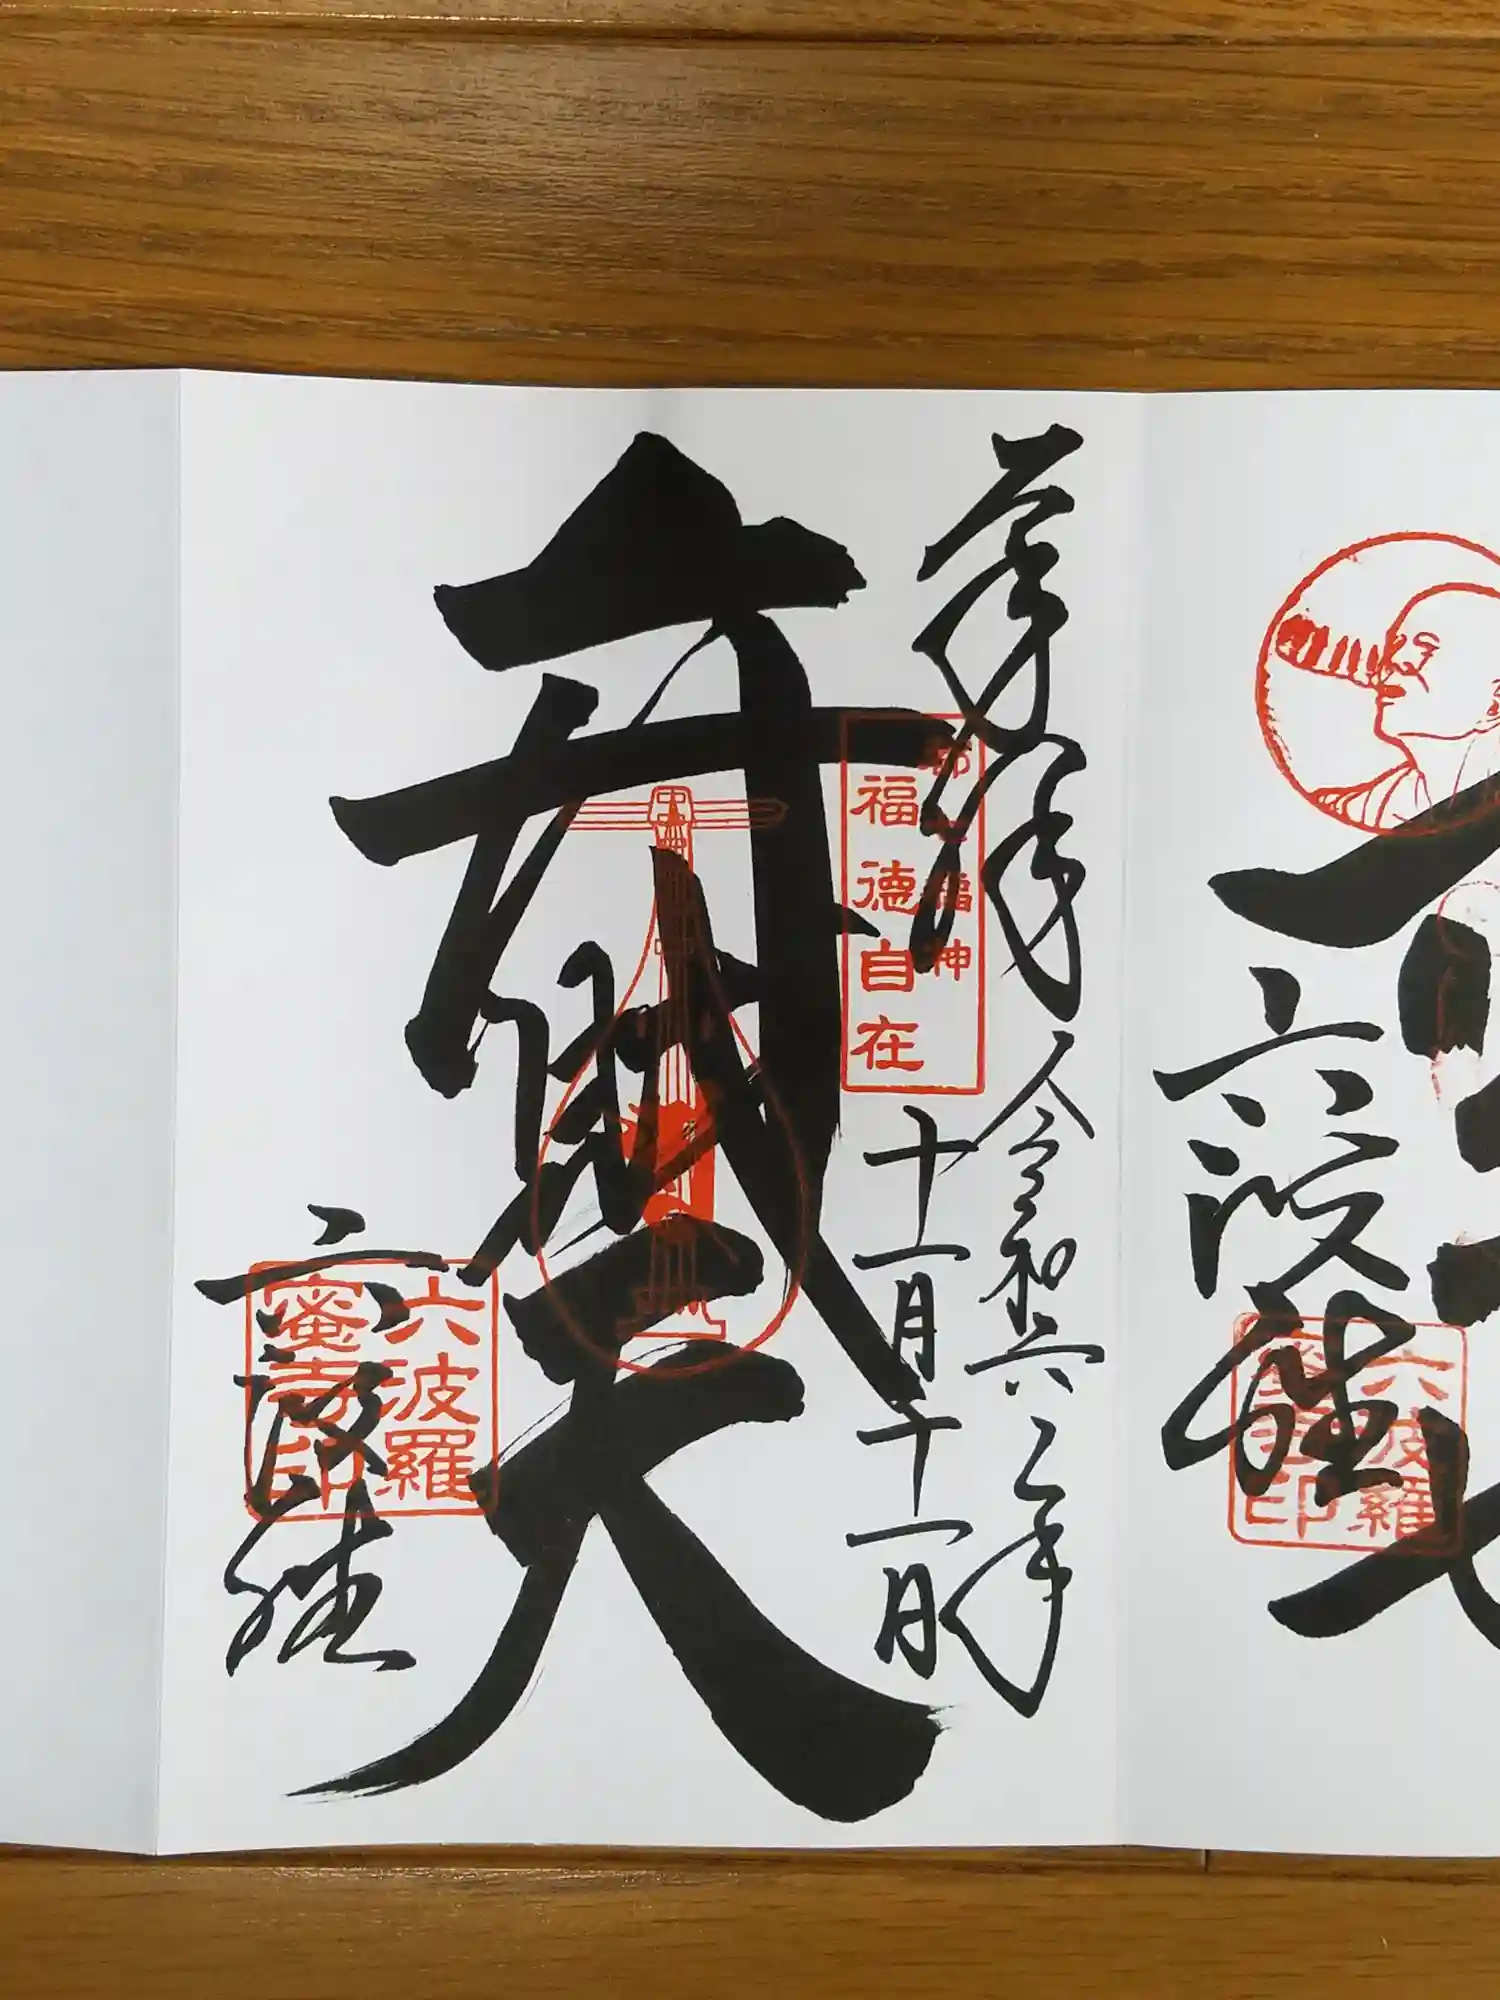 奉拝
令和六年
十一月十一日
都七福神
福徳自在
弁財天
六波羅
六波羅
蜜寺印
六波羅
六波羅
蜜寺印